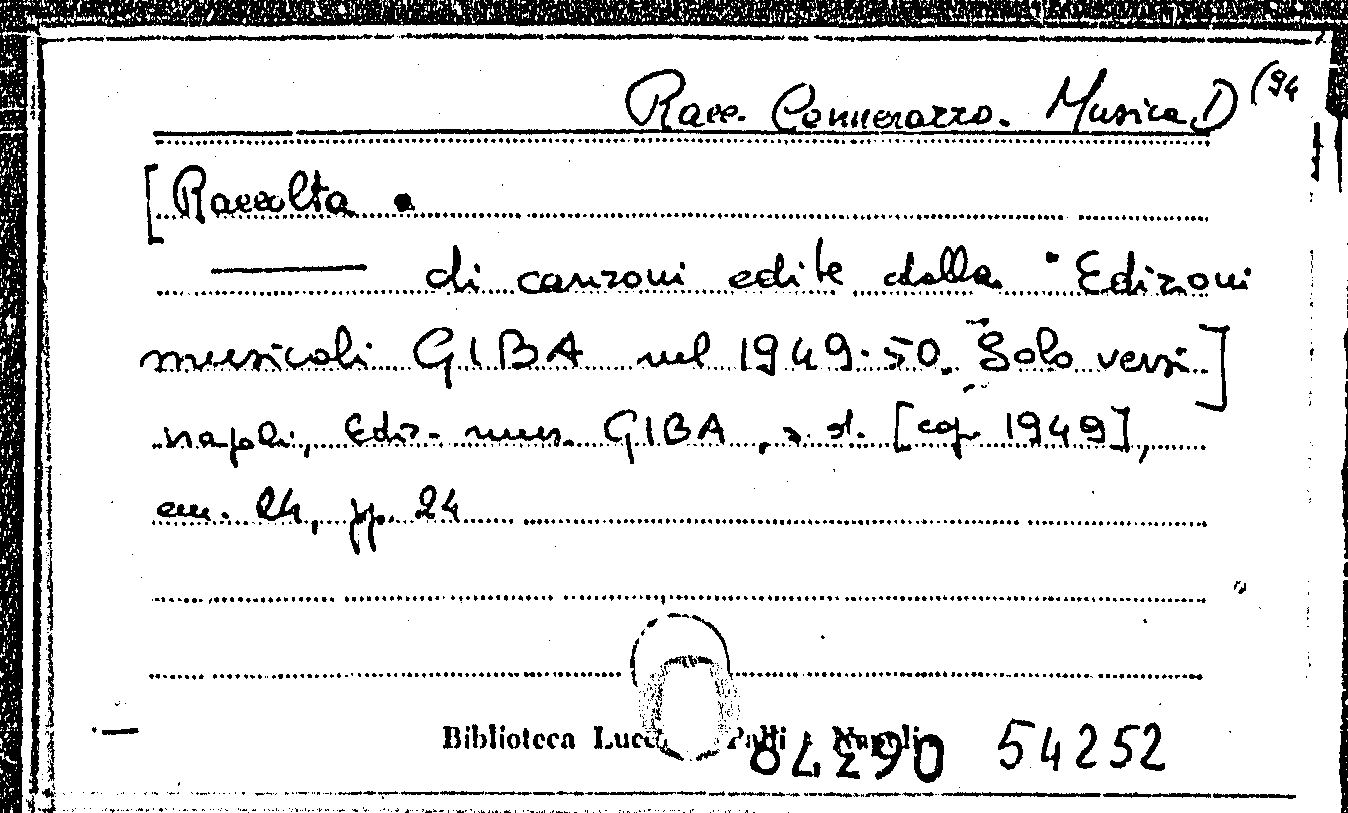 Racc. Cannerazzo. Musica D (94
[Raccolta.
——— di canzoni edite dalla "Edizioni
musicali GIBA nel 1949-50. Solo versi]
napoli, Ediz. mus. GIBA, s. d. [cop. 1949],
cm. 24, pp. 24
Biblioteca Lucchesi Palli - Napoli
54252